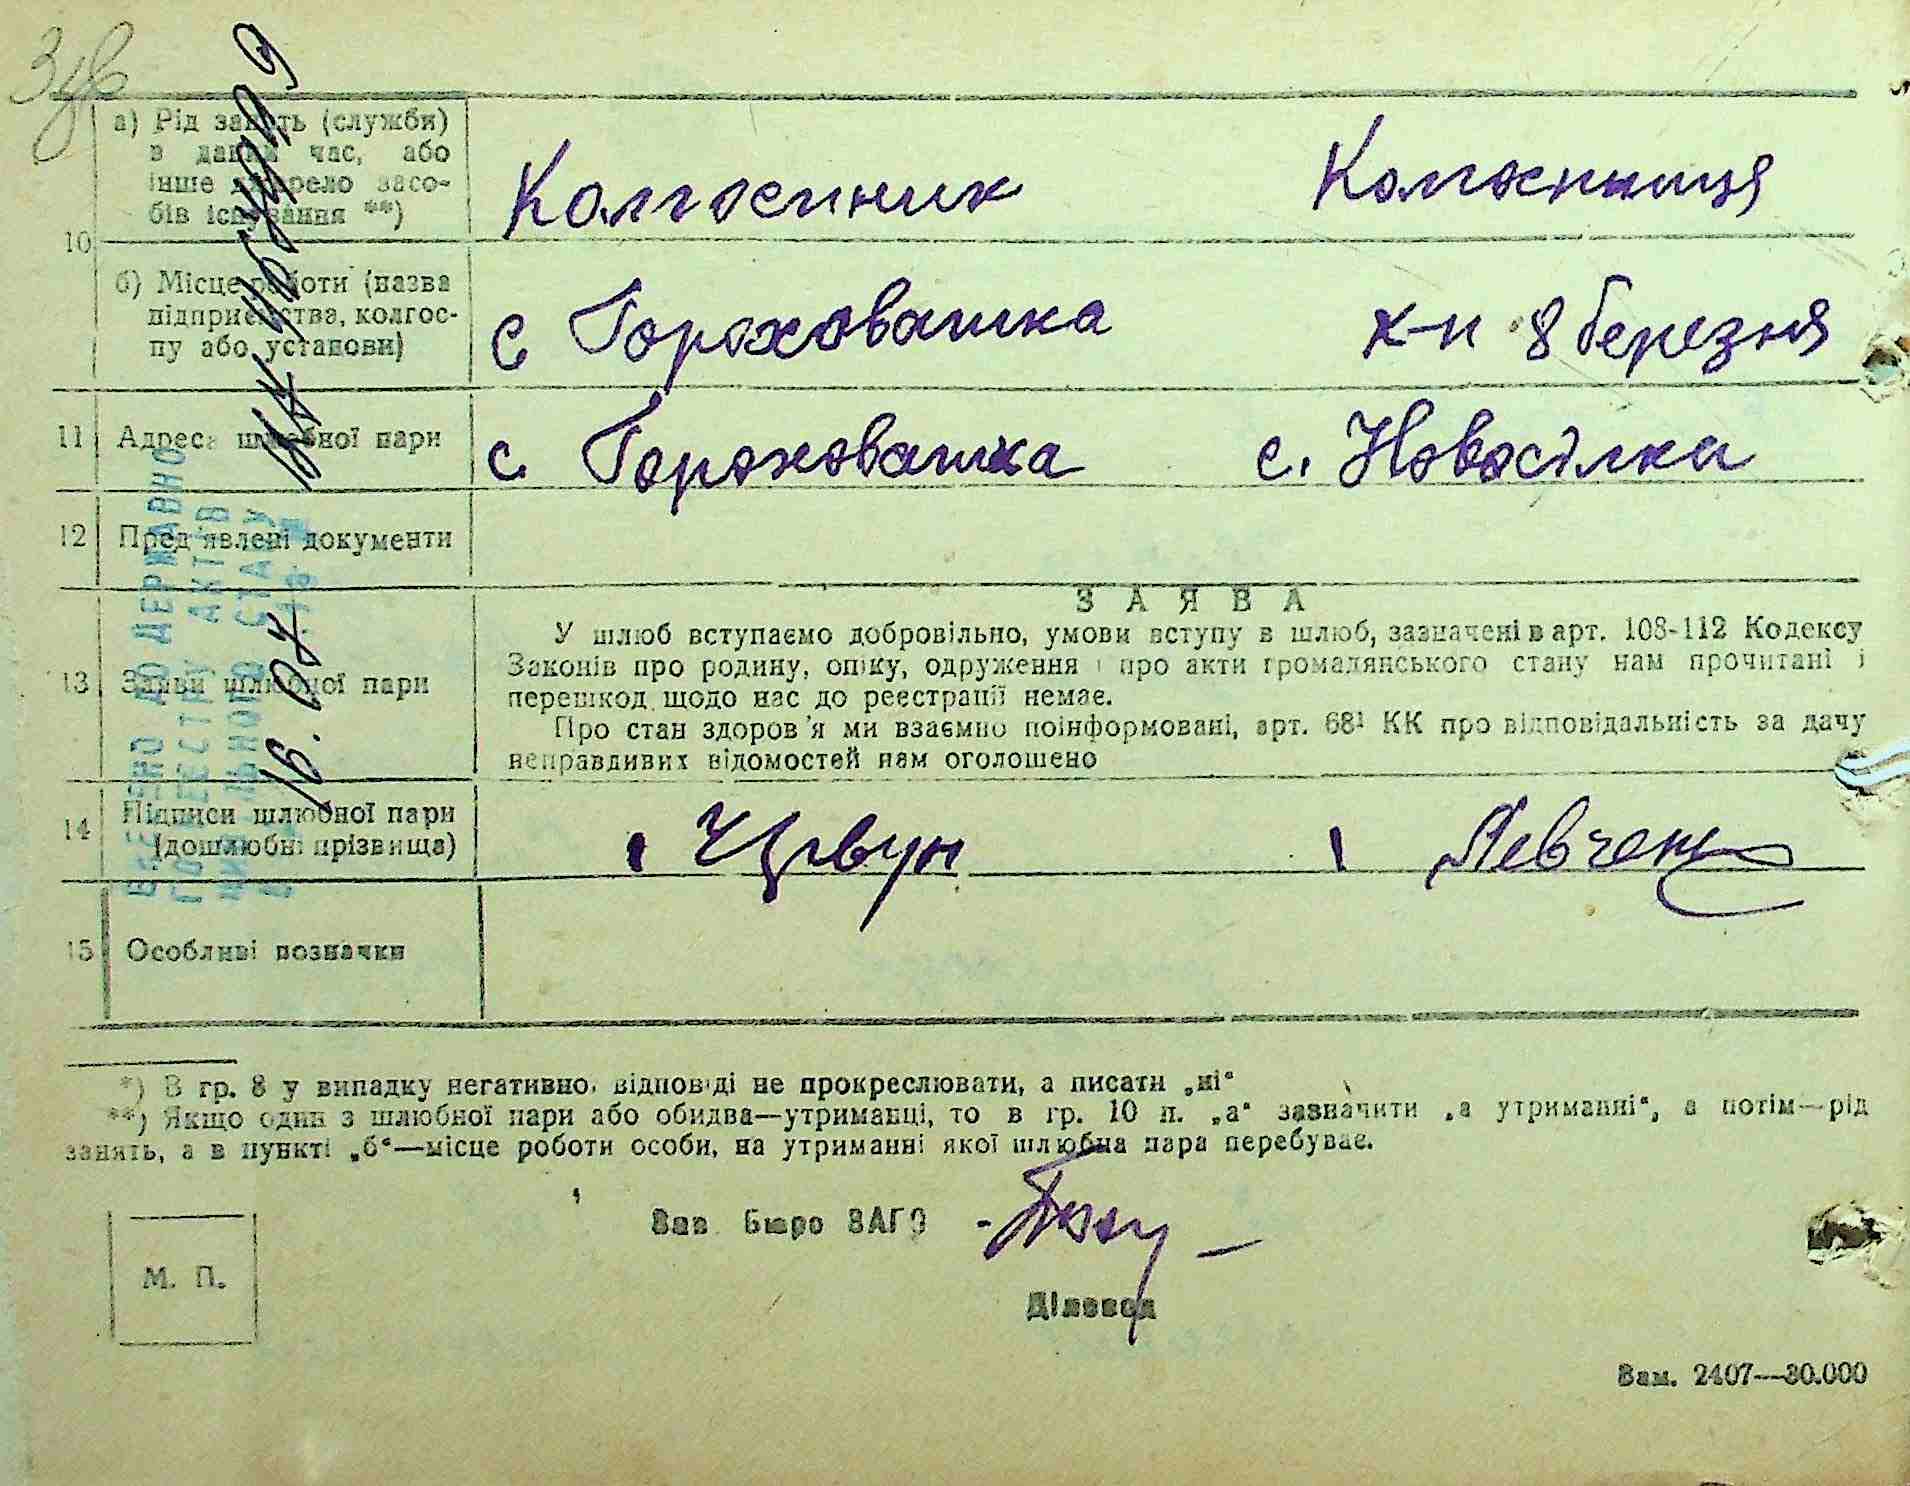 а) Рід занять (служби)
в даний час, або
інше джерело засо-
бів існування **)
Колгоспник Колгоспниця
10
б) Місце роботи (назва
підприємства, колгос-
пу або установи)
с Гороховатка к-п 8 березня
11 Адреса шлюбної пари с. Гороховатка с. Новосілка
12 Пред'явлені документи
ЗАЯВА
У шлюб вступаємо добровільно, умови вступу в шлюб, зазначені в арт. 108-112 Кодексу
Законів про родину, опіку, одруження і про акти громадянського стану нам прочитані і
перешкод щодо нас до реєстрації немає.
Про стан здоров'я ми взаємно поінформовані, арт. 68¹ КК про відповідальність за дачу
неправдивих відомостей нам оголошено
13 Заяви шлюбної пари
14 Підписи шлюбної пари
(дошлюбні прізвища)
Левченко
15 Особливі позначки
*) В гр. 8 у випадку негативної відповіді не прокреслювати, а писати „ні“
**) Якщо один з шлюбної пари або обидва—утриманці, то в гр. 10 п. „а“ зазначити „а утриманні“, а потім—рід
занять, а в пункті „б“—місце роботи особи, на утриманні якої шлюбна пара перебуває.
Зав. Бюро ЗАГС
М. П.
Діловод
Зам. 2407—30.000